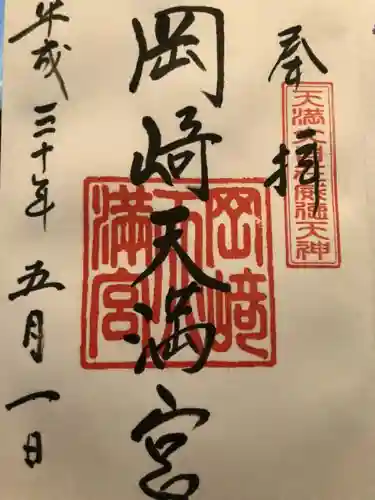 奉拝
天満大自在威徳天神
岡崎天満宮
岡崎天満宮
平成三十年五月一日